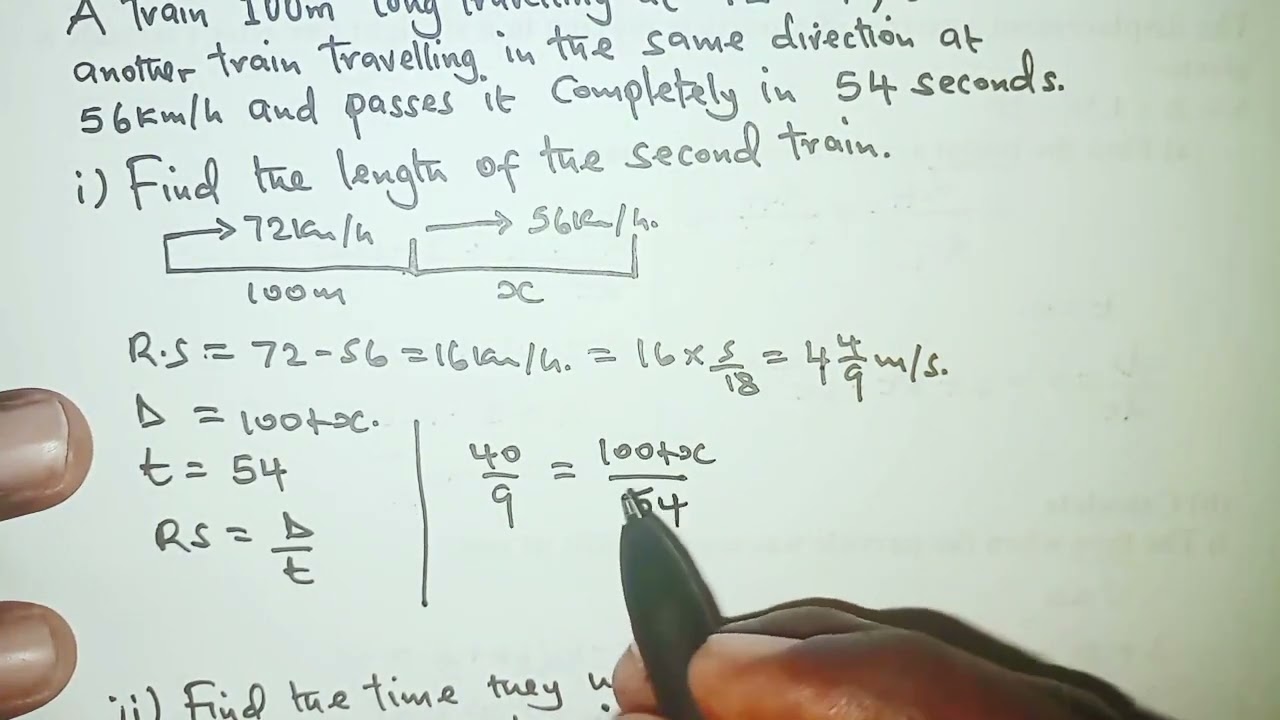 A train 100m long travelling at
another train travelling in the same direction at
56Km/h and passes it completely in 54 seconds.
i) Find the length of the second train.
72Km/h 56Km/h.
100m x
R.S = 72 - 56 = 16km/h. = 16 × 5/18 = 4 4/9 m/s.
D = 100+x.
t = 54
RS = D/t
40/9 = 100+x/54
ii) Find the time they